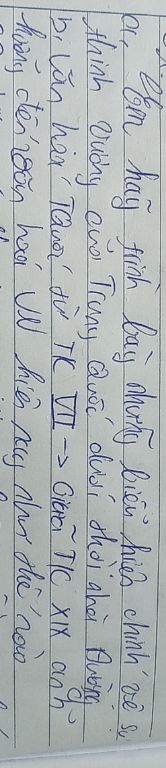 a, Em hãy trình bày những biểu hiện chính về sự
thịnh vượng của Trung Quốc dưới thời nhà Đường
b, Văn hoá T Quốc từ TK VII -> Giữa TK XIX ảnh
hưởng đến văn hoá VN hiện nay như thế nào